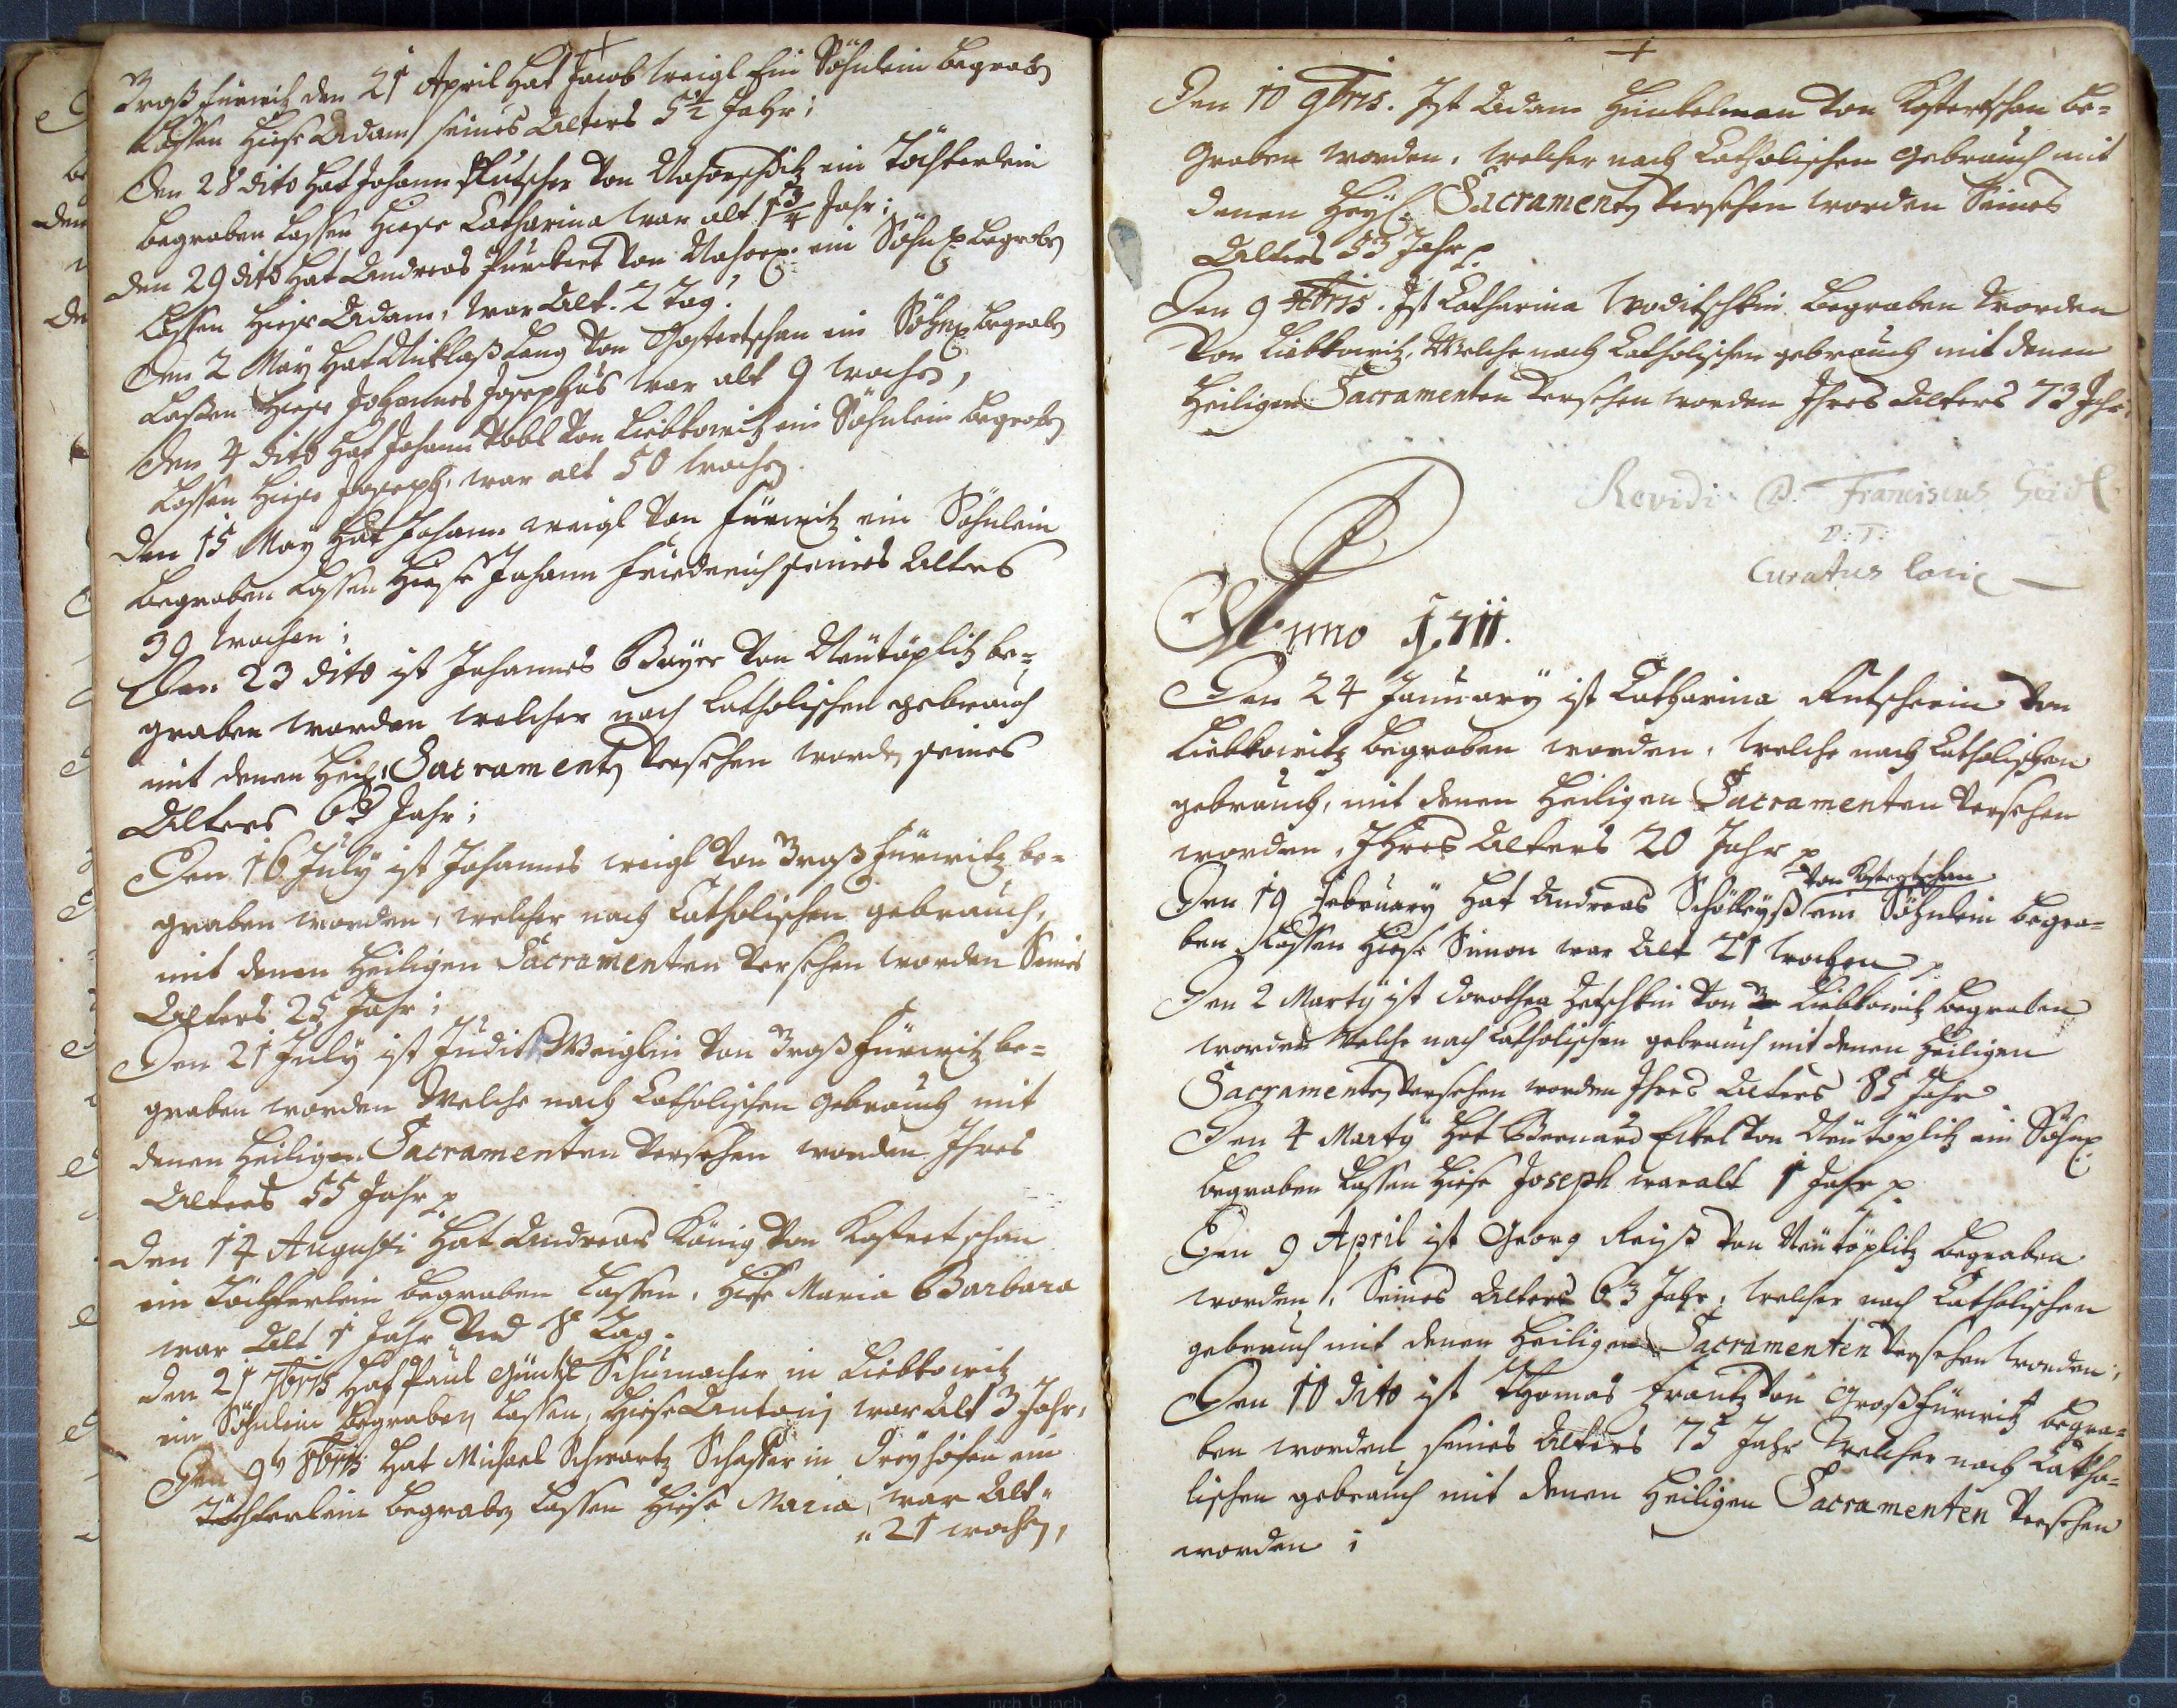 Groß fürwitz den 21 April hat Jacob Weigl Ein Söhnlein begraben
Lassen hiese Adam seines Alters 5½ Jahr;
Den 28 dito hat Johann Kutscher von Nahorschitz ein Töchterlein
begraben Lassen hiese Catharina war alt 1¾ Jahr;
den 29 dito hat Andreas Punckert von Nahor: ein Söhnl: begraben
Lassen hiese Adam, war Alt. 2 Tag.
Den 2 May hat Niklaß Lang von Kostertschan ein Söhnl: begraben
Lassen hiese Johannes Josephus war alt 9 wochen,
Den 4 dito hat Johann von Liebkowitz ein Söhnlein begraben
Lassen hiese Joseph, war alt 50 wochen.
den 15 May hat Johann Weigl von fürwitz ein Söhnlein
begraben Lassen hiese Johann Friedrich seines Alters
39 wochen;
Den 23 dito ist Johannes Bayer von Neutöplitz be=
graben worden welcher nach Catholischen gebrauch
mit denen Heil: Sacramenten versehen worden seines
Alters 63 Jahr;
Den 16 July ist Johannes Weigl von Groß fürwitz be=
graben worden, welcher nach Catholischen gebrauch,
mit denen Heiligen Sacramenten versehen worden Seines
Alters 25 Jahr;
Den 21 July ist Judith Weiglin von Groß fürwitz be=
graben worden Welche nach Catholischen gebrauch mit
denen Heiligen Sacramenten versehen worden Ihres
Alters 55 Jahr
den 14 Augusti hat Andreas König von Kostertschan
ein Töchterlein begraben Lassen, hiese Maria Barbara
war Alt 1 Jahr Und 8 Tag.
den 21 7bris hat Paul Güntzl Schumacher in Liebkowitz
ein Söhnlein begraben Lassen, hiese Antoni war Alt 3 Jahr,
Den 9 8bris hat Michael Schwartz Schaffer in Dreyhöfen ein
Töchterlein begraben Lassen hiese Maria, war Alt
21 wochen,
Den 10 9bris. Ist Adam Hunkelman von Kostertschan be=
Graben worden, welcher nach Catholischen gebrauch mit
denen Heyl: Sacramenten versehen worden Seines
Alters 53 Jahr
Den 9 Xbris. Ist Catharina Woditschkin begraben worden
von Liebkowitz, Welche nach Catholischen gebrauch mit denen
Heiligen Sacramenten versehen worden Ihres Alters 73 Jahr,
Revidi P. Franciscus Seidl
P: T:
Curatus
Anno 1711.
Den 24 January ist Catharina Kutscherin von
Liebkowitz begraben worden, welche nach Catholischen
gebrauch, mit denen Heiligen Sacramenten versehen
worden, Ihres Alters 20 Jahr
von Kostertschan
Den 19 February hat Andreas Schölleyß ein Söhnlein begra=
ben Lassen hiese Simon war Alt 21 wochen
Den 2 Marty ist Dorothea Hetschkin von Liebkowitz begraben
worden Welche nach Catholischen gebrauch mit denen Heiligen
Sacramenten versehen worden Ihres Alters 85 Jahr
Den 4 Marty hat Bernard Eckel von Neutöplitz ein Söhnl:
begraben Lassen hiese Joseph war alt 1 Jahr
Den 9 April ist Georg Reiß von Neutöplitz begraben
worden, Seines Alters 63 Jahr, welcher nach Catholischen
gebrauch mit denen Heiligen Sacramenten versehen worden;
Den 10 dito ist Thomas Frantz von Groß fürwitz begra=
ben worden seines Alters 75 Jahr welcher nach Catho=
lischen gebrauch mit denen Heiligen Sacramenten versehen
worden;